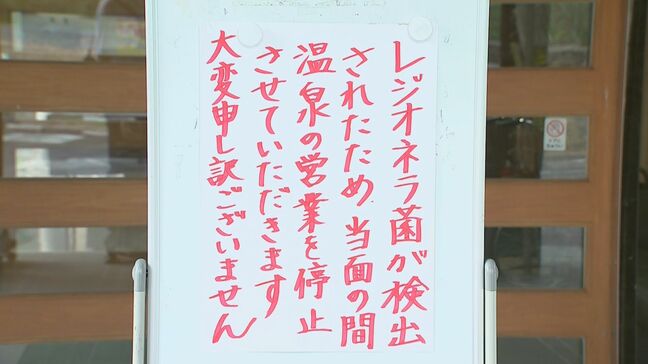 レジオネラ菌が検出
されたため当面の間
温泉の営業を停止
させていただきます
大変申し訳ございません